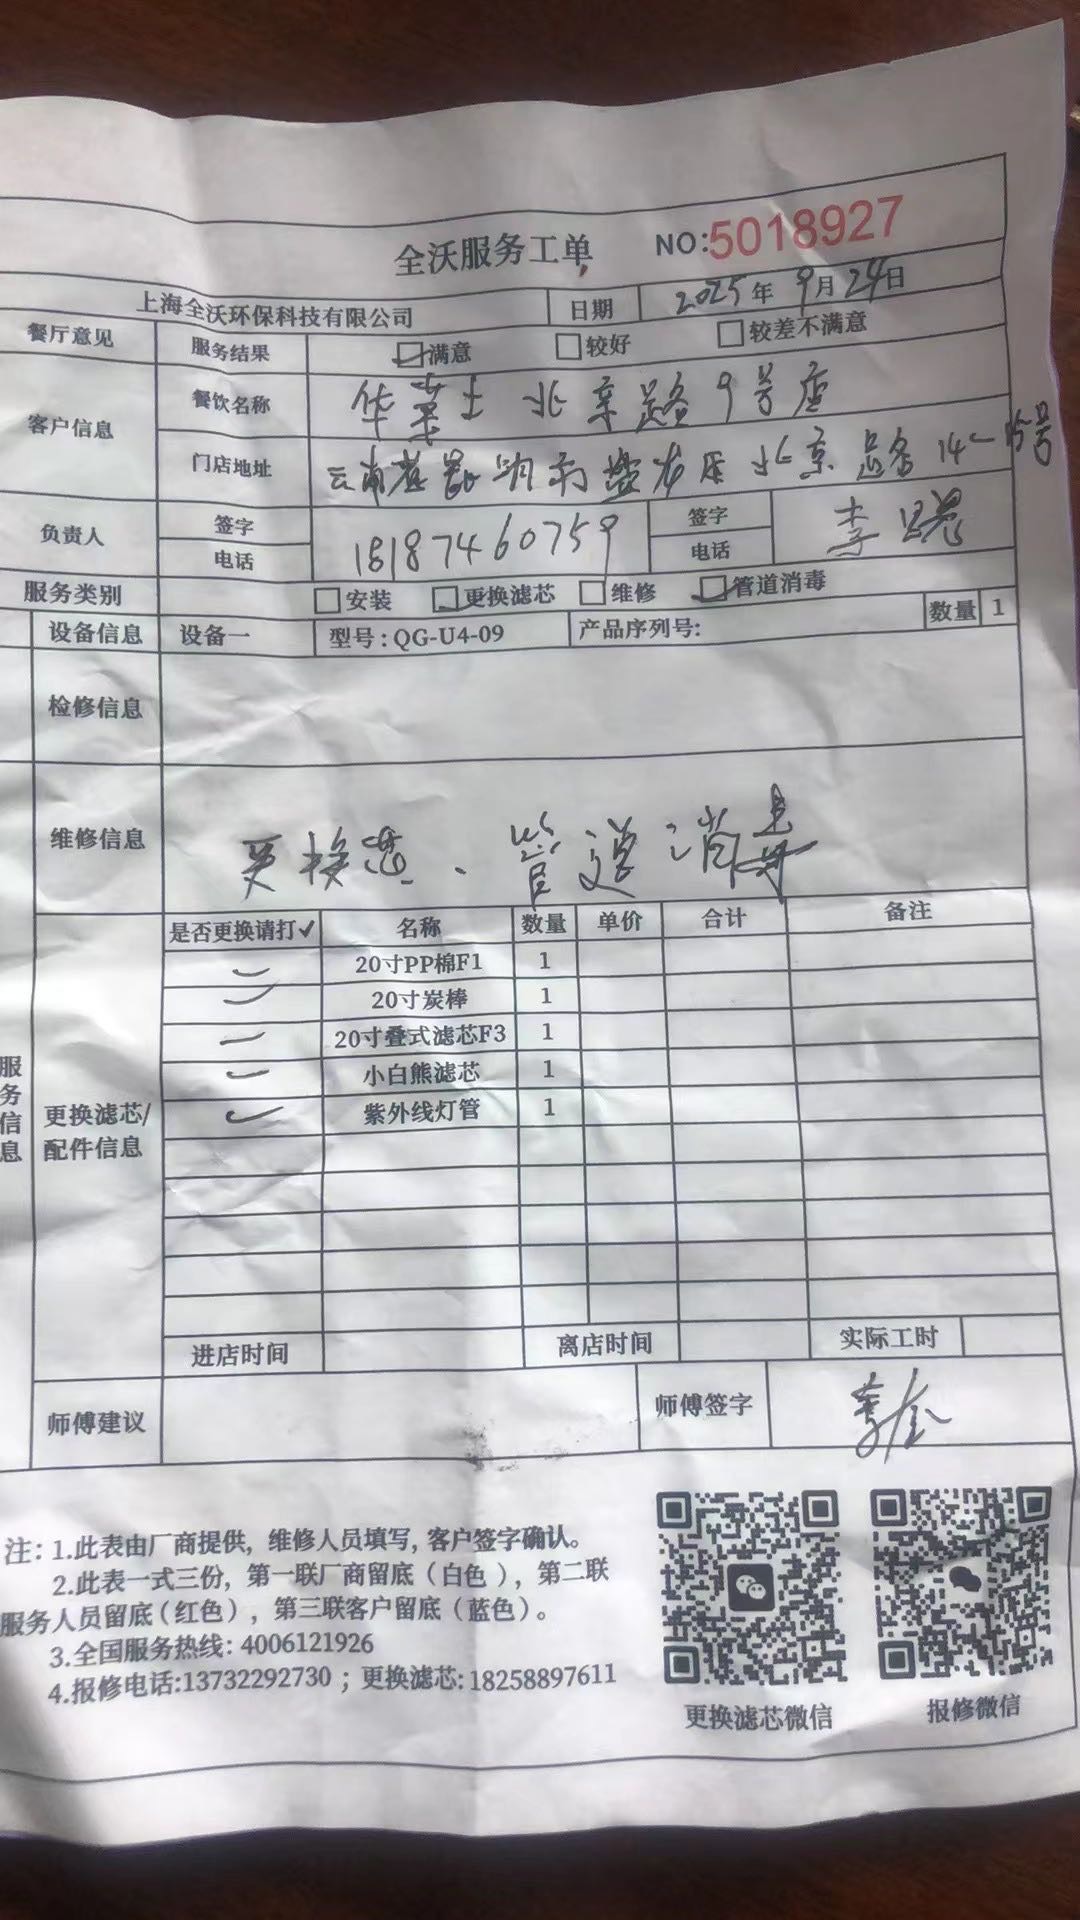 全沃服务工单 NO:5018927
上海全沃环保科技有限公司 日期 2025年9月24日
餐厅意见 服务结果 满意 较好 较差不满意
客户信息 餐饮名称 华莱士北京路9号店
门店地址 云南省昆明市盘龙区北京路
负责人 签字 电话 18187460759 签字 电话 李
服务类别 安装 更换滤芯 维修 管道消毒
设备信息 设备一 型号:QG-U4-09 产品序列号: 数量 1
检修信息
维修信息 更换芯、管道消毒
服务信息
更换滤芯/配件信息
是否更换请打✓ 名称 数量 单价 合计 备注
✓ 20寸PP棉F1 1
✓ 20寸炭棒 1
✓ 20寸叠式滤芯F3 1
✓ 小白熊滤芯 1
✓ 紫外线灯管 1
进店时间 离店时间 实际工时
师傅建议 师傅签字
注:1.此表由厂商提供,维修人员填写,客户签字确认。
2.此表一式三份,第一联厂商留底(白色),第二联
服务人员留底(红色),第三联客户留底(蓝色)。
3.全国服务热线:4006121926
4.报修电话:13732292730;更换滤芯:18258897611
更换滤芯微信 报修微信